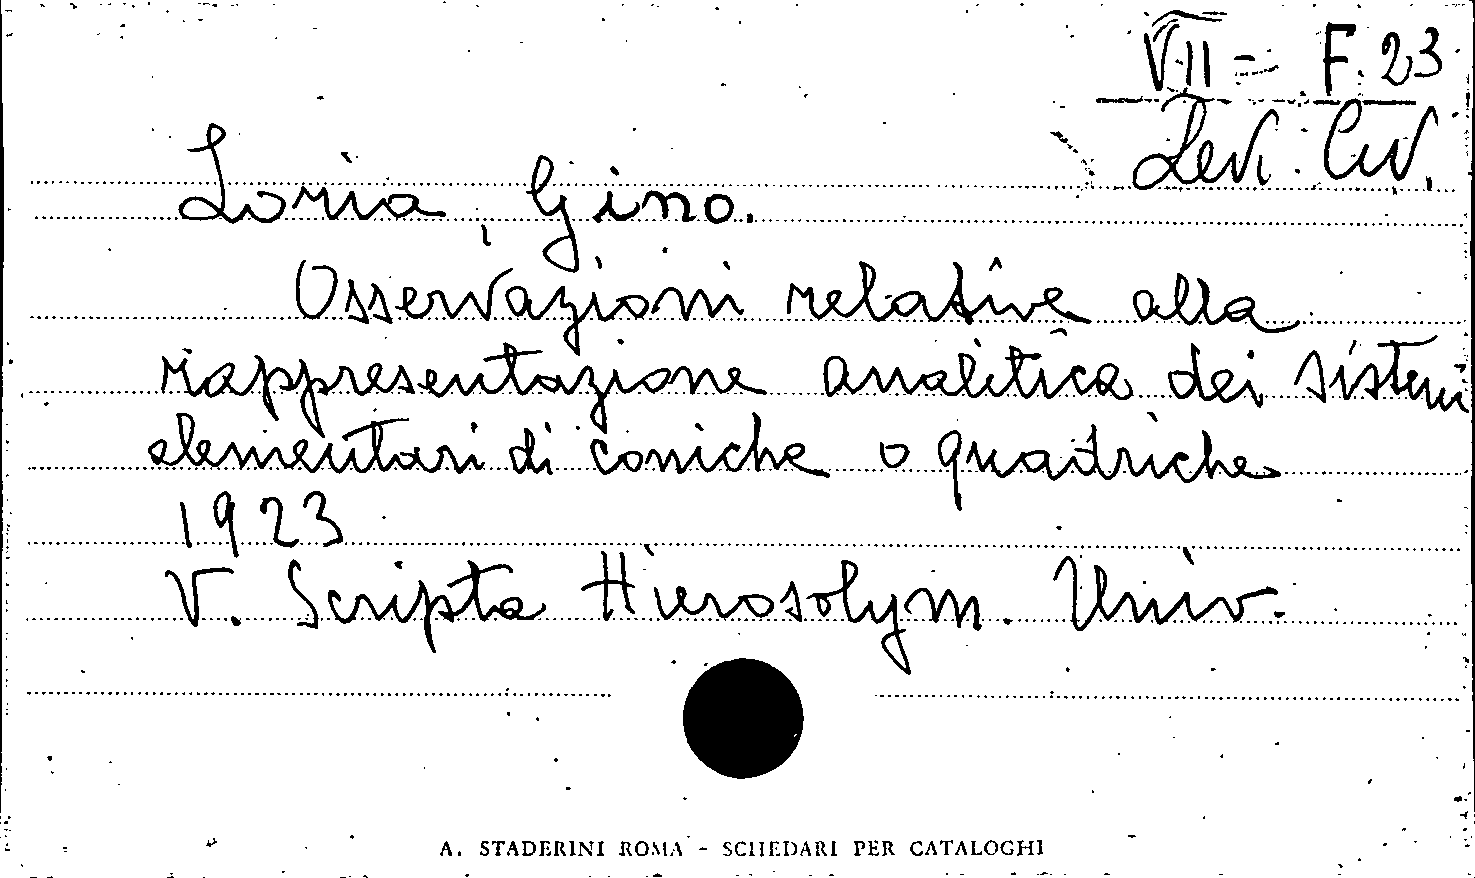 VII = F. 23
Levi. Civ.
Loria, Gino.
Osservazioni relative alla
rappresentazione analitica dei sistemi
elementari di coniche o quadriche
1923
V. Scripta Hierosolym. Univ.
A. STADERINI ROMA - SCHEDARI PER CATALOGHI